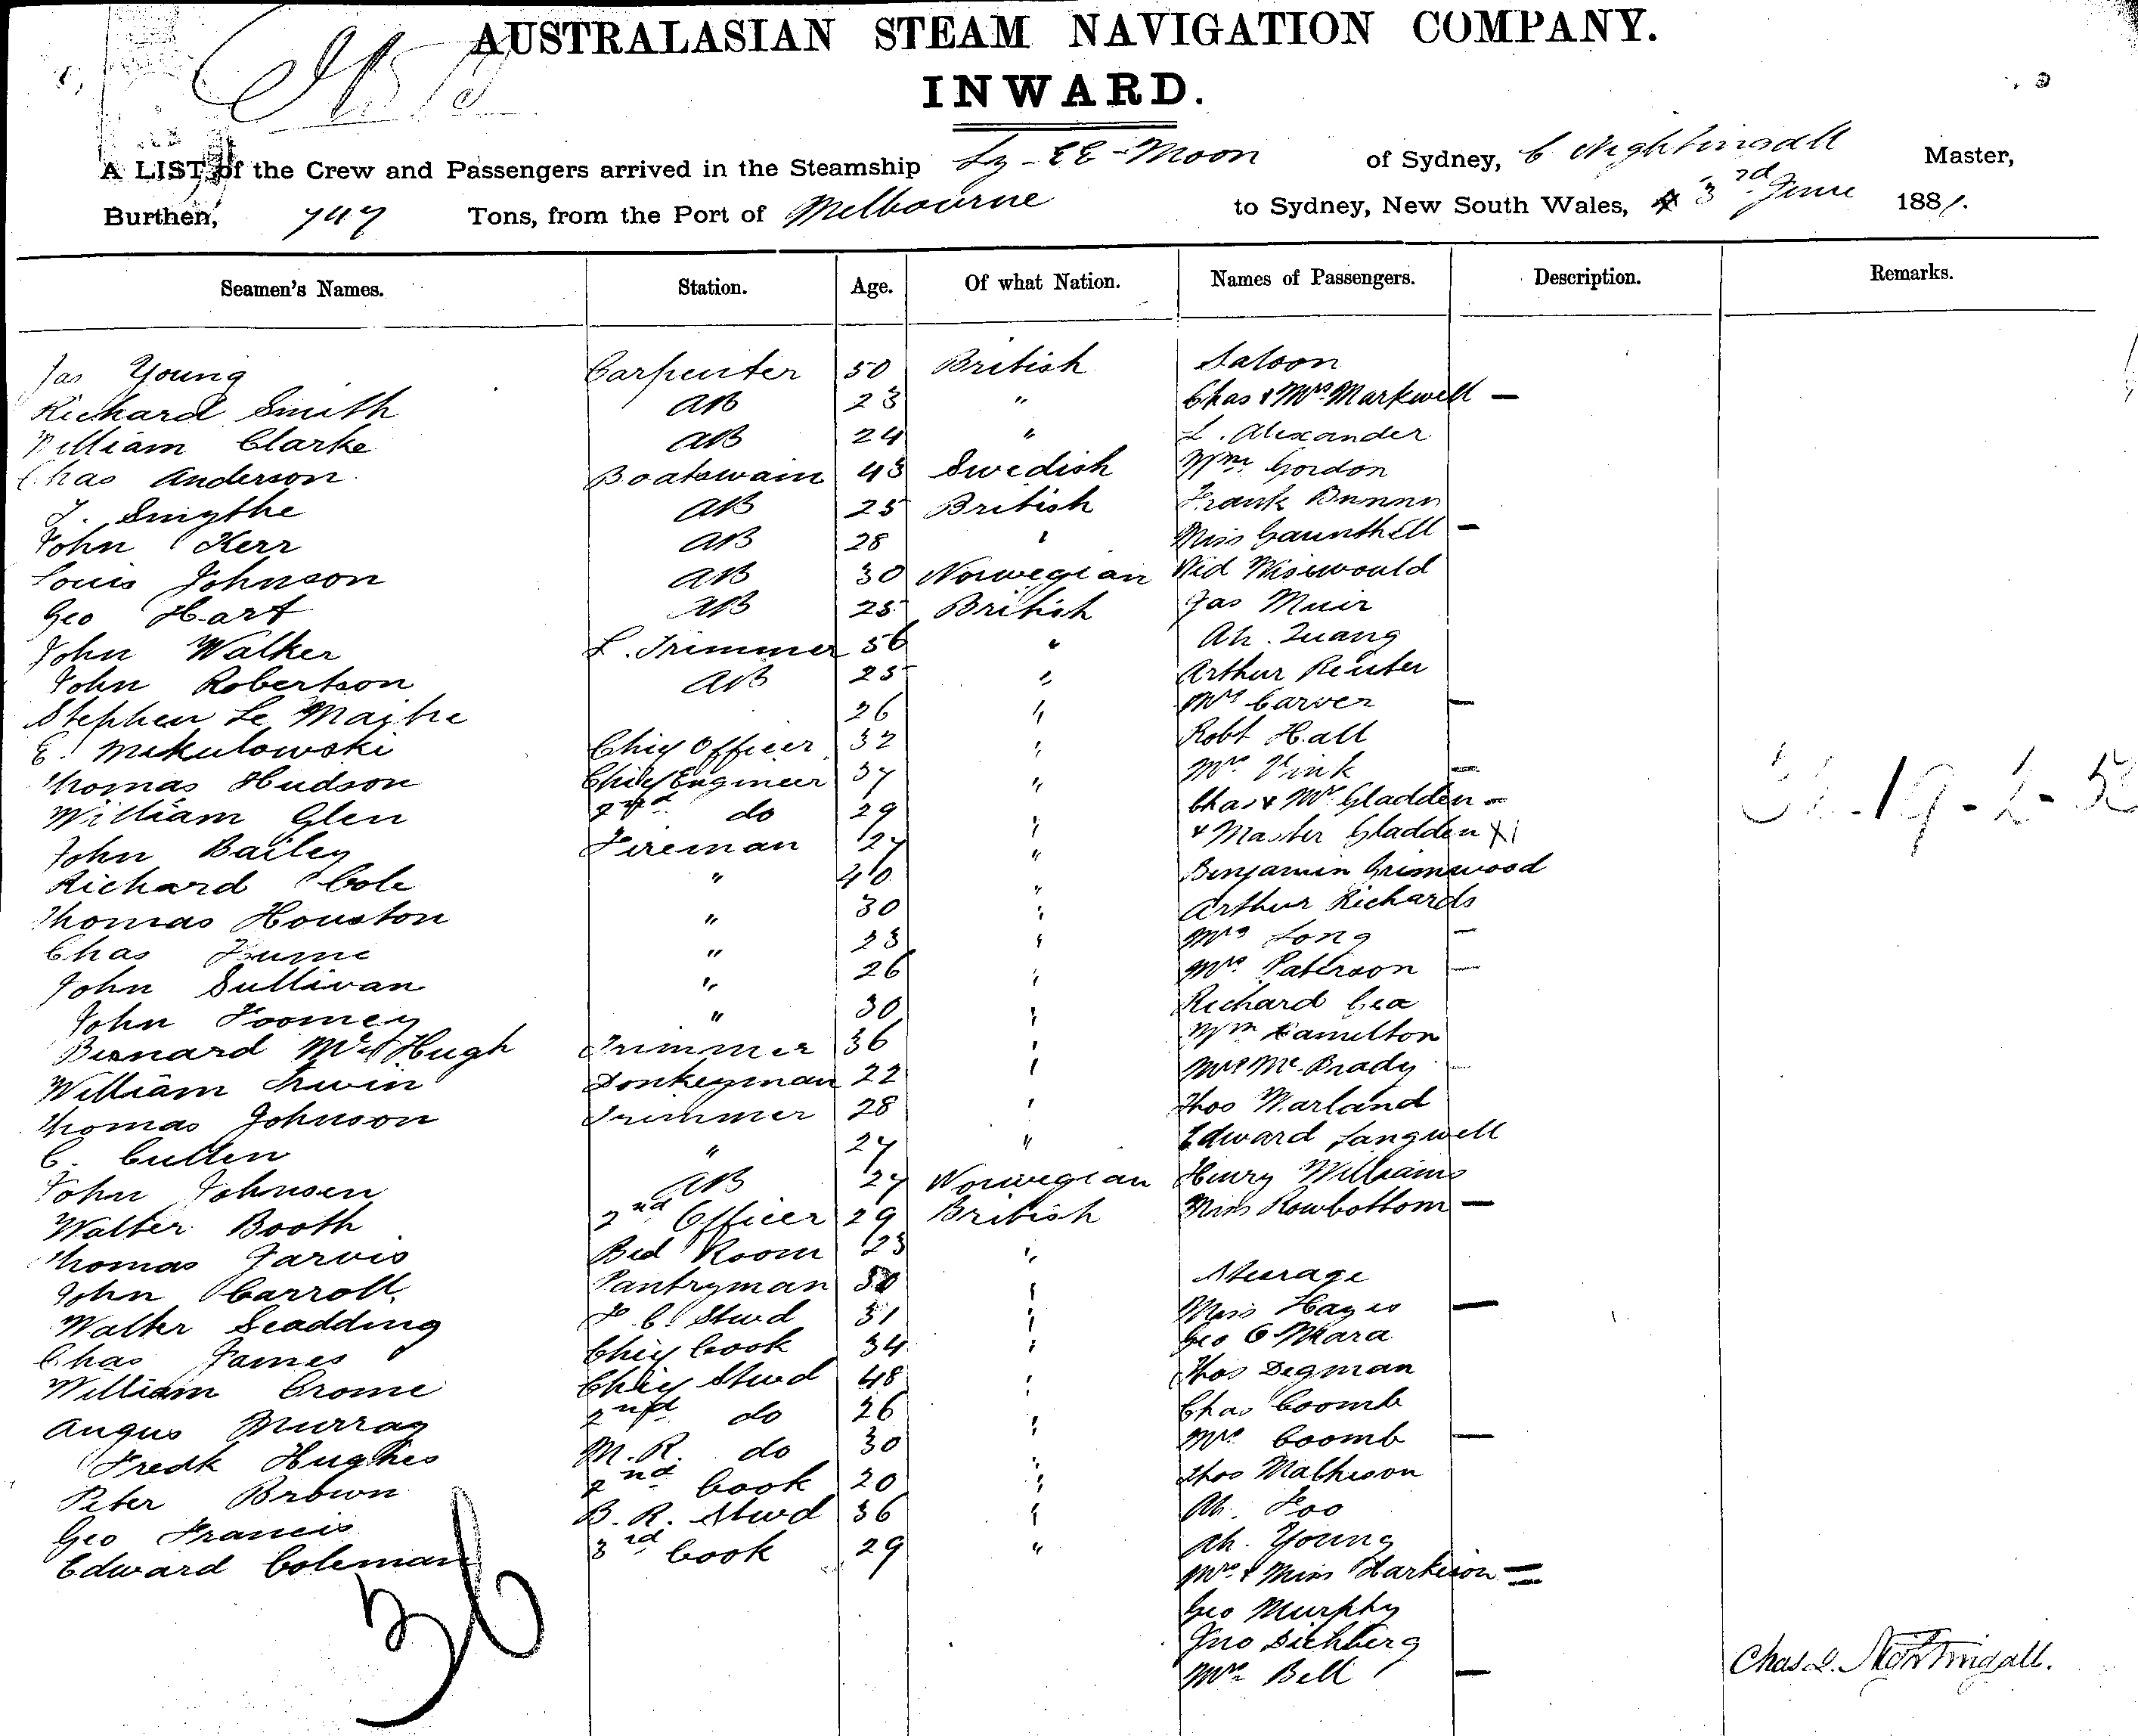 AUSTRALASIAN STEAM NAVIGATION COMPANY.
INWARD.
A LIST of the Crew and Passengers arrived in the Steamship Ly-EE-Moon of Sydney, C Nightingall Master,
Burthen, 747 Tons, from the Port of Melbourne to Sydney, New South Wales, 3rd June 1881.
Seamen's Names. Station. Age. Of what Nation. Names of Passengers. Description. Remarks.
Jas Young Carpenter 50 British Saloon
Richard Smith AB 23 " Chas & Mrs Markwell —
William Clarke AB 24 " L. Alexander
Chas Anderson Boatswain 43 Swedish Wm Gordon
J. Smythe AB 25 British Frank
John Kerr AB 28 " Miss Gaunthell —
Louis Johnson AB 30 Norwegian Wisewould
Geo Hart AB 25 British Jas Muir
John Walker L. Trimmer 56 " Ah. Quang
John Robertson AB 25 " Arthur Reuter
Stephen Le Maitre 26 " Mrs Carver —
E. Mikulowski Chief Officer 32 " Robt Hall
Thomas Hudson Chief Engineer 37 " Mrs Vink —
William Glen 2nd do 29 Chas & Mrs Gladden —
John Bailey Fireman 27 " & Master Gladden
Richard Cole " 40 " Benjamin Grimwood
Thomas Houston " 30 " Arthur Richards
Chas " 23 " Mrs Long —
John Sullivan " 26 " Mrs Paterson —
John Toomey " 30 " Richard Cea
Bernard McHugh Trimmer 36 " Wm Hamilton
William Irwin Donkeyman 22 " Mrs Mc.Brady —
Thomas Johnson Trimmer 28 " Thos Warland
C. Cullen " 27 " Edward Langwell
John Johnsen AB 27 Norwegian Henry Williams
Walter Booth 2nd Officer 29 British Miss Rowbottom —
Thomas Jarvis Bed Room 23 "
John Carroll Pantryman " Steerage
Walter Scadding F. C. Stwd 31 " Miss Hayes —
Chas James Chief Cook 34 " Geo O'Meara
William Crome Chief Stwd 48 " Thos Degman
Angus Murray 2nd do 26 " Chas Coomb
Fredk Hughes M. R. do 30 " Mrs Coomb —
Peter Brown 2nd Cook 20 " Thos Matheson
Geo Francis B. R. Stwd 36 " Ah. Foo
Edward Coleman 3rd Cook 29 " Ah. Young
Mrs & Miss Harkison =
Geo Murphy
Jno Dichberg
Mrs Bell —
36
Chas. L. Nightingall.